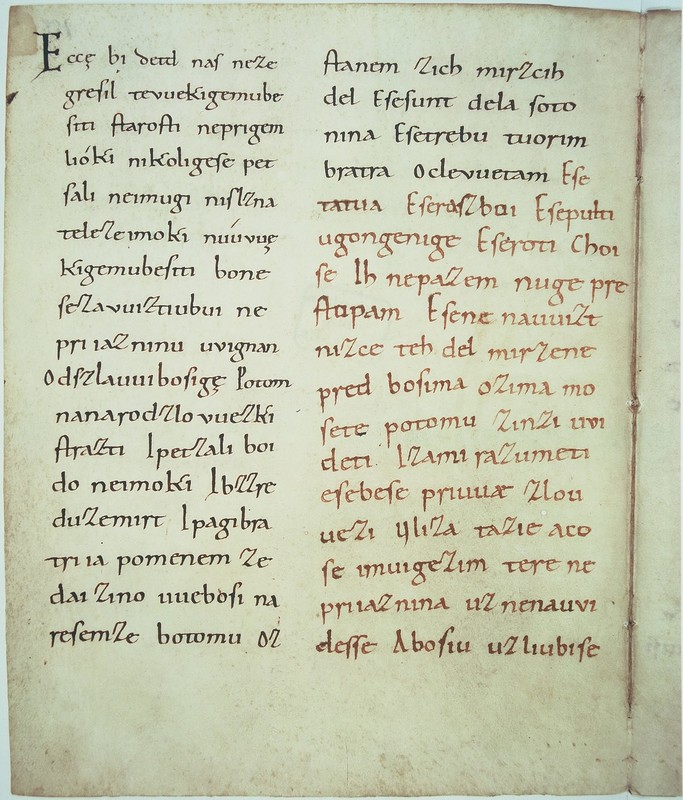 Eccę bi detd naſ neze
greſil tevuekigemube
ſiti ſtaroſti neprigem
lióki nikoligeſe pet
ſali neimugi niſlzna
telezeimoki núuvuę
kigemubeſiti bone
ſezavuiztiubui ne
priiazninu uvignan
Odszlauuiboſigę Potom
nanarodzlovuezki
ſtrazti Ipetzali boi
do neimoki Ibzzre
duzemirt Ipagibra
triia pomenem ze
dai zino uuebóſi na
reſemze botomu Oz
ſtanem zich mirzcih
del Eſeſunt dela ſoto
nina Eſetrebu tuorim
bratra Oclevuetam Eſe
tatua Eſeraszboi Eſepulti
ugongenige Eſeroti Choi
ſe Ih nepazem nuge pre
ſtopam Eſene nauuizt
nizce teh del mirzene
pred boſima ozima mo
ſete potomu zinzi uvi
deti Izami razumeti
eſebeſe priuuæ zlou
uezi Iliza tazie aco
ſe imuigezim tere ne
priiaznina uz nenauvi
deſſe Aboſiu uzliubiſe